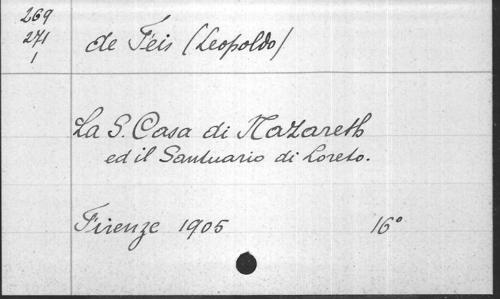 269
271
1
de Féis (Leopoldo)
La S. Casa di Nazareth
ed il Santuario di Loreto.
Firenze 1905
16°